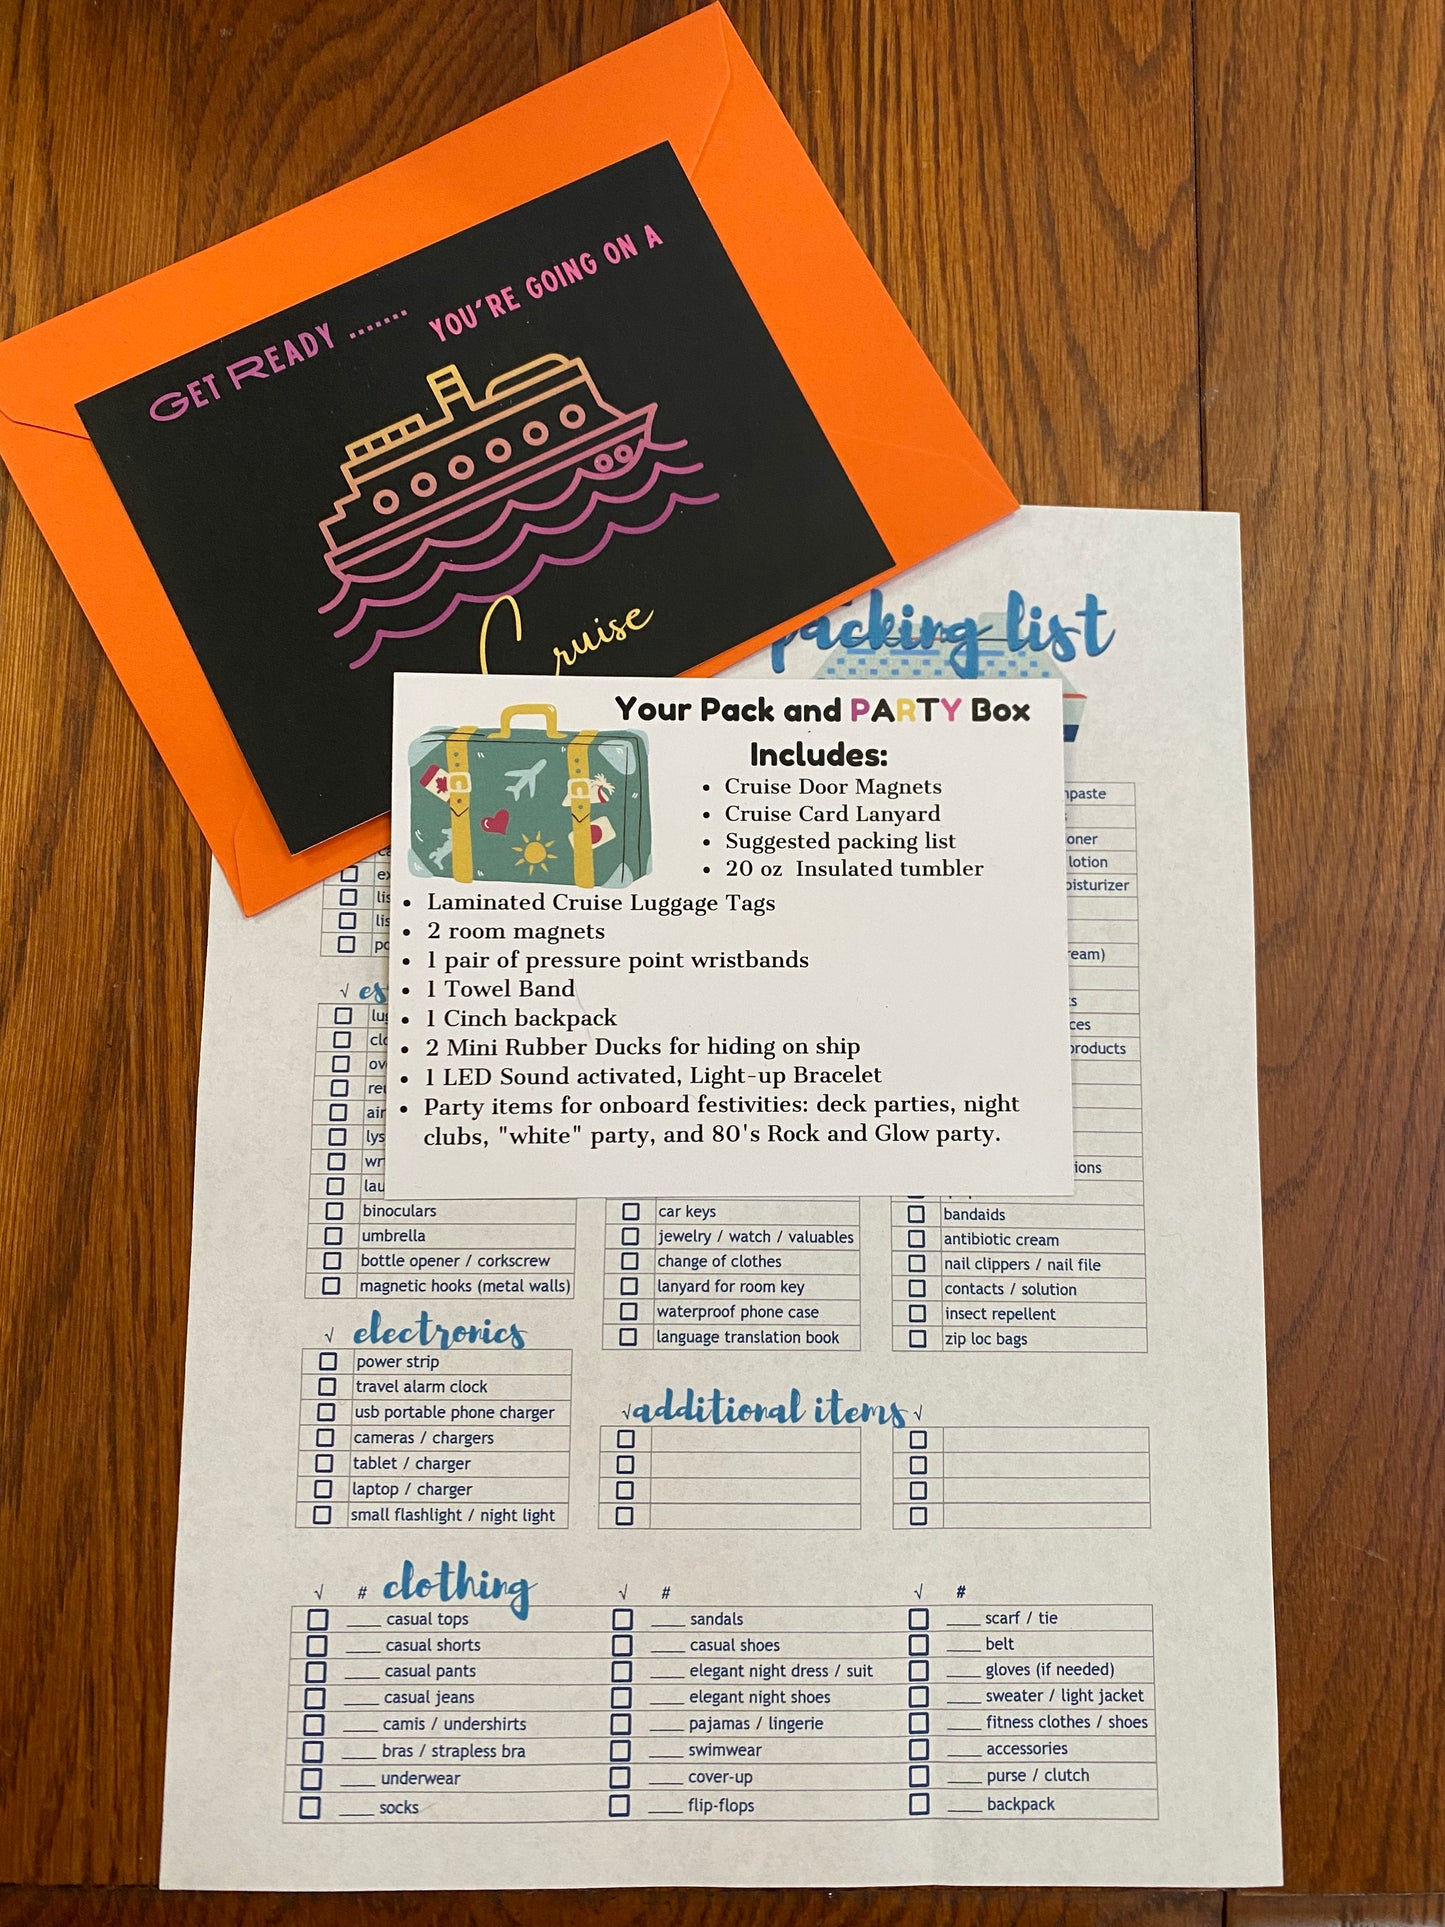 GET READY ....... YOU'RE GOING ON A
Cruise
packing list
Your Pack and PARTY Box
Includes:
• Cruise Door Magnets
• Cruise Card Lanyard
• Suggested packing list
• 20 oz Insulated tumbler
• Laminated Cruise Luggage Tags
• 2 room magnets
• 1 pair of pressure point wristbands
• 1 Towel Band
• 1 Cinch backpack
• 2 Mini Rubber Ducks for hiding on ship
• 1 LED Sound activated, Light-up Bracelet
• Party items for onboard festivities: deck parties, night
clubs, "white" party, and 80's Rock and Glow party.
lotion
products
binoculars
umbrella
bottle opener / corkscrew
magnetic hooks (metal walls)
√ electronics
power strip
travel alarm clock
usb portable phone charger
cameras / chargers
tablet / charger
laptop / charger
small flashlight / night light
car keys
jewelry / watch / valuables
change of clothes
lanyard for room key
waterproof phone case
language translation book
bandaids
antibiotic cream
nail clippers / nail file
contacts / solution
insect repellent
zip loc bags
√ additional items √
√ # clothing √ # √ #
____ casual tops
____ casual shorts
____ casual pants
____ casual jeans
____ camis / undershirts
____ bras / strapless bra
____ underwear
____ socks
____ sandals
____ casual shoes
____ elegant night dress / suit
____ elegant night shoes
____ pajamas / lingerie
____ swimwear
____ cover-up
____ flip-flops
____ scarf / tie
____ belt
____ gloves (if needed)
____ sweater / light jacket
____ fitness clothes / shoes
____ accessories
____ purse / clutch
____ backpack